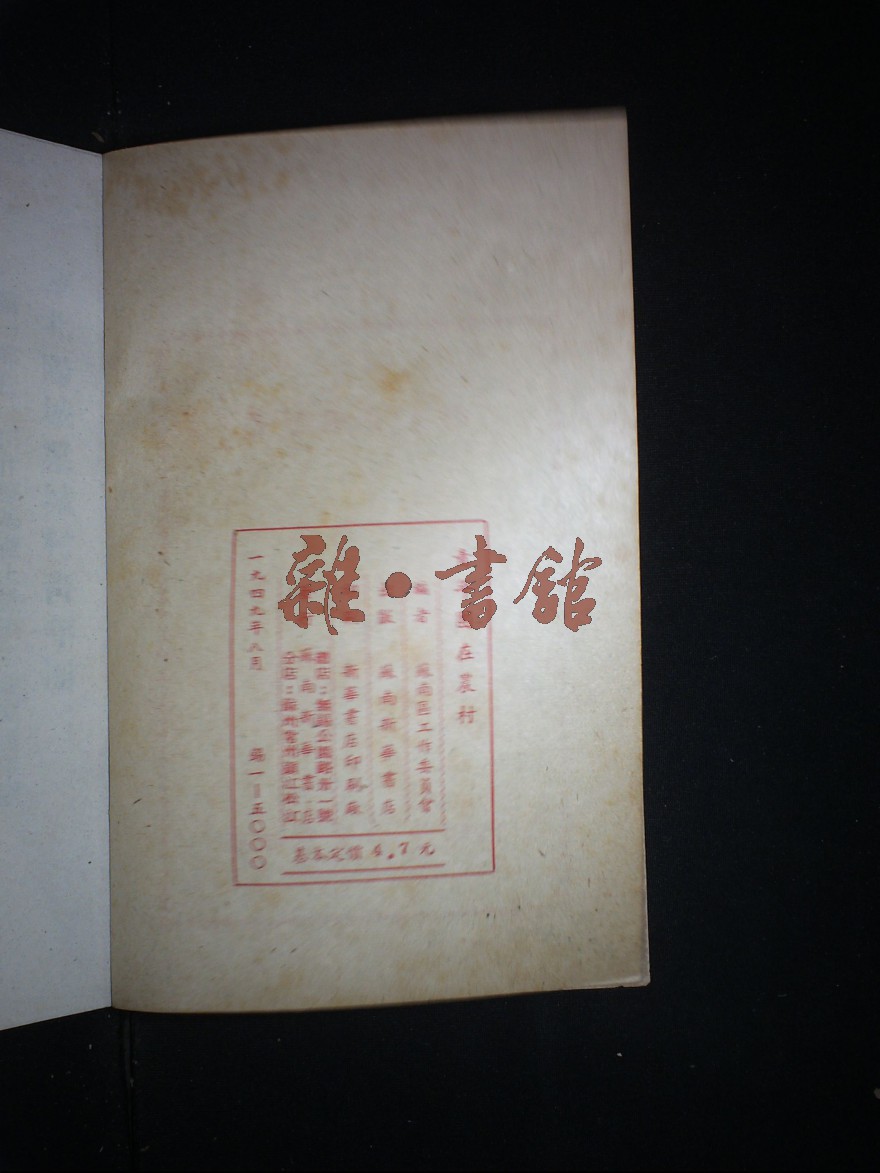 雜·書館
青年團在農村
編者 蘇南區工作委員會
出版 蘇南新華書店
新華書店印刷廠
蘇南新華書店
總店：無錫公園路廿一號
分店：蘇州常州鎮江松江
一九四九年八月 錫一—五〇〇〇
基本定價 4.7 元